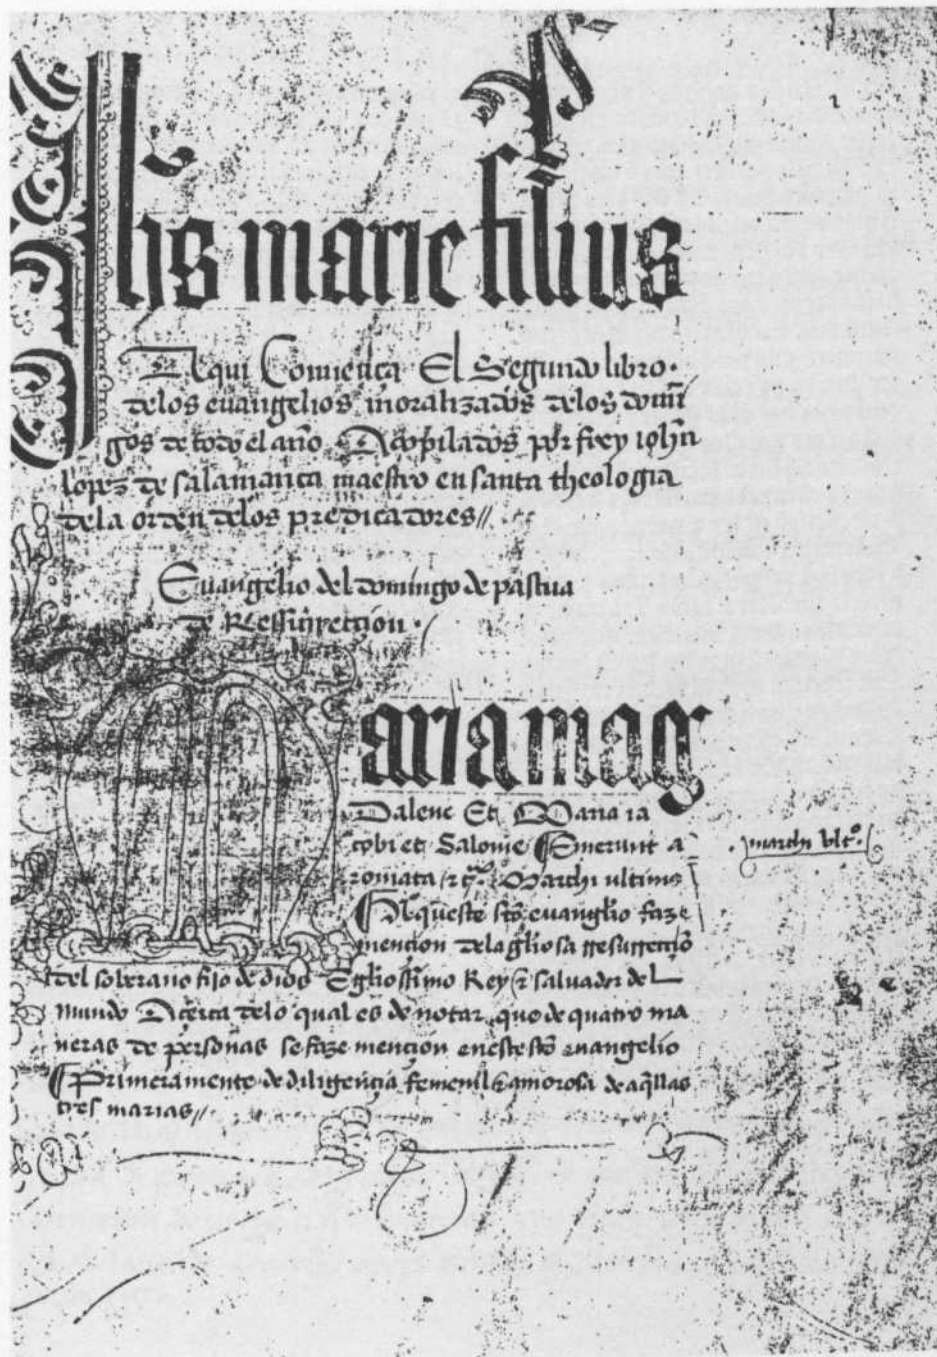 Jhs marie filius
Aqui Comiença El Segundo libro·
delos euangelios moralizados delos domĩ
gos de todo el año Acopilados por frey ioħn
lopez de salamanca maestro en santa theologia
dela orden delos predicadores//.
Euangelio del domingo de pascua
de Ressurrecçion·/
Maria mag
dalene Et Maria ia
cobi et Salome ¶ Emerunt a
romata /⁊c̃. Marchi ultimo
·marchi vltº·
¶ Aqueste sctõ euanglio faze
mençion dela gliosa rresurrecçiõ
del soberano fijo de dios E gliosissimo Rey ⁊ saluador del
mundo Açerca delo qual es de notar que de quatro ma
neras de personas se faze mençion eneste sctõ euangelio
¶ Primeramente de diligençia femenil ⁊ amorosa de aq̃llas
tres marias//.